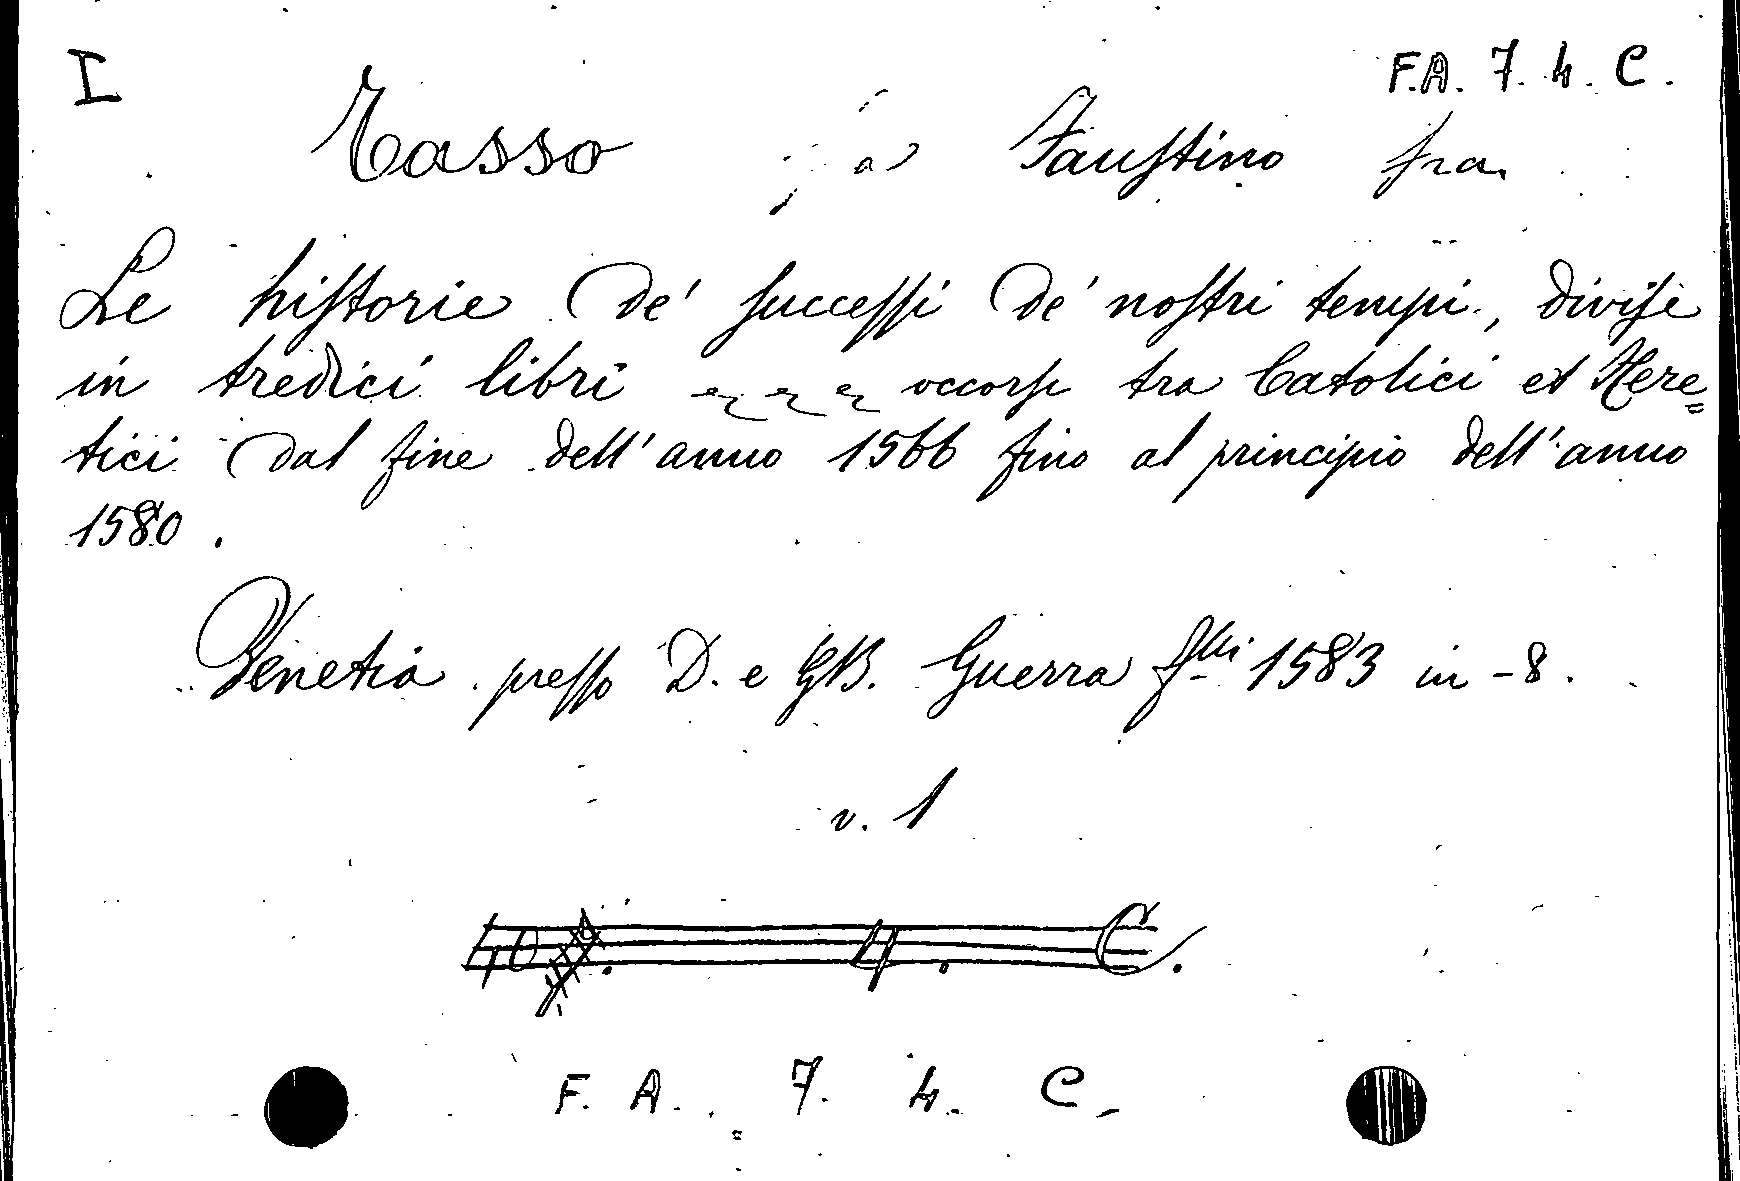 I
F.A. 7. 4. C.
Tasso Faustino fra.
Le historie de' successi de' nostri tempi, divise
in tredici libri occorsi tra Catolici et Here=
tici dal fine dell'anno 1566 fino al principio dell'anno
1580.
Venetia presso D. e GB. Guerra f.lli 1583 in-8.
v. 1
4. C.
F. A. 7. 4. C.